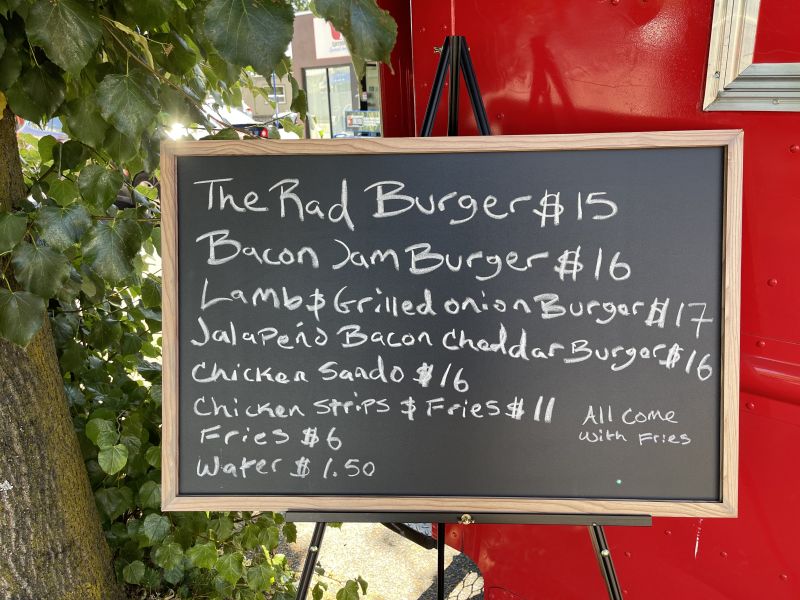 The Rad Burger $15
Bacon Jam Burger $16
Lamb & Grilled onion Burger $17
Jalapeño Bacon Cheddar Burger $16
Chicken Sando $16
Chicken Strips & Fries $11
Fries $6
Water $1.50
All Come
With Fries